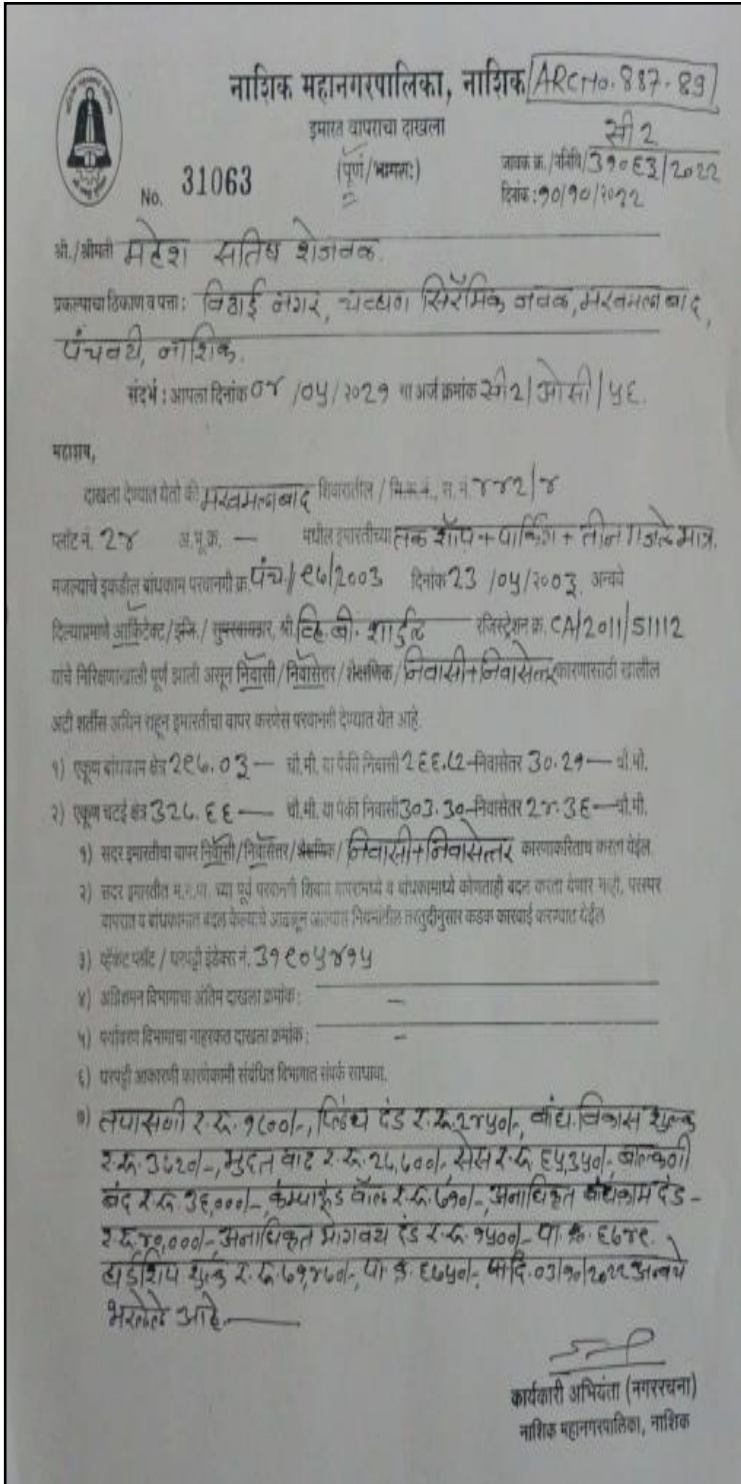 नाशिक महानगरपालिका, नाशिक ARC No. 887-89
इमारत वापराचा दाखला
(पूर्ण/भागशः)
सी 2
No. 31063
जावक क्र./नरवि/३१०६३/२०२२
दिनांक : १०/१०/२०२२
श्री./श्रीमती महेश सतिष शेजवळ
प्रकल्पाचा ठिकाण व पत्ता : विठाई नगर, चव्हाण सिरॅमिक जवळ, मखमलाबाद,
पंचवटी, नाशिक.
संदर्भ : आपला दिनांक ०४/०५/२०२१ चा अर्ज क्रमांक सी२/ओसी/५६.
महाशय,
दाखला देण्यात येतो की मखमलाबाद शिवारातील / सि.स.नं., स. नं. ४४२/४
प्लॉट नं. 2४ अ.भू.क्र. — मधील इमारतीच्या तळ शॉप + पार्किंग + तीन मजले मात्र.
मजल्याचे इकडील बांधकाम परवानगी क्र. पंच/१८७/२००३ दिनांक 23/०५/२००३ अन्वये
दिल्याप्रमाणे आर्किटेक्ट/इंजि./ सुपरवायझर, श्री. व्हि. बी. शार्दुल रजिस्ट्रेशन क्र. CA/2011/51112
यांचे निरिक्षणाखाली पूर्ण झाली असून निवासी/निवासेत्तर/शैक्षणिक/निवासी+निवासेत्तर कारणासाठी खालील
अटी शर्तीस अधिन राहून इमारतीचा वापर करणेस परवानगी देण्यात येत आहे.
१) एकूण बांधकाम क्षेत्र २९७.०३ — चौ.मी. या पैकी निवासी २६६.८२ – निवासेतर ३०.२१ — चौ.मी.
२) एकूण चटई क्षेत्र ३२७.६६ — चौ.मी. या पैकी निवासी ३०३.३० – निवासेतर २४.३६ — चौ.मी.
१) सदर इमारतीचा वापर निवासी/निवासेत्तर/शैक्षणिक/निवासी+निवासेत्तर कारणाकरिताच करता येईल.
२) सदर इमारतीत म.न.पा. च्या पूर्व परवानगी शिवाय वापरामध्ये व बांधकामाध्ये कोणताही बदल करता येणार नाही, परस्पर
वापरात व बांधकामात बदल केल्याचे आढळून आल्यास नियमांतील तरतुदीनुसार कडक कारवाई करण्यात येईल
३) व्हॅकंट प्लॉट / घरपट्टी इंडेक्स नं. ३१९०५४१५
४) अग्निशमन विभागाचा अंतिम दाखला क्रमांक : —
५) पर्यावरण विभागाचा नाहरकत दाखला क्रमांक : —
६) घरपट्टी आकारणी कारणेकामी संबंधित विभागात संपर्क साधावा.
७) तपासणी र.रु. १८००/-, प्लिंथ दंड र.रु. २४५०/-, बांध. विकास शुल्क
र.रु. ३८२०/-, मुदत वाढ र.रु. २८,८००/- सेस र.रु. ६५३५०/- बाल्कनी
बंद र.रु. ३६,०००/-, कम्पाऊंड वॉल र.रु. ७१०/-, अनाधिकृत बांधकाम दंड -
र.रु. ४०,०००/- अनाधिकृत भोगवटा दंड र.रु. १५००/- पा. क्र. ६७४९.
हार्डशिप शुल्क र.रु. ७१,४७०/-, पा क्र. ६७५०/-, दि. ०३/१०/२०२२ अन्वये
भरलेले आहे. —
कार्यकारी अभियंता (नगररचना)
नाशिक महानगरपालिका, नाशिक